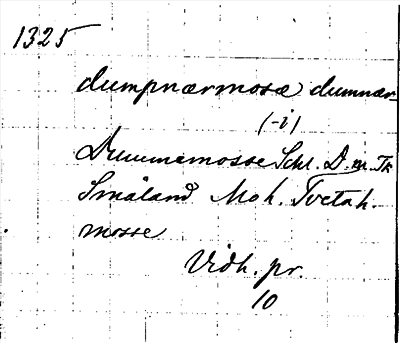 1325
dumpnærmosæ dumnær-
(-i)
Dummemosse Schl. D. m. Tk
Småland Moh. Tvetah.
mosse
Vidh. pr.
10